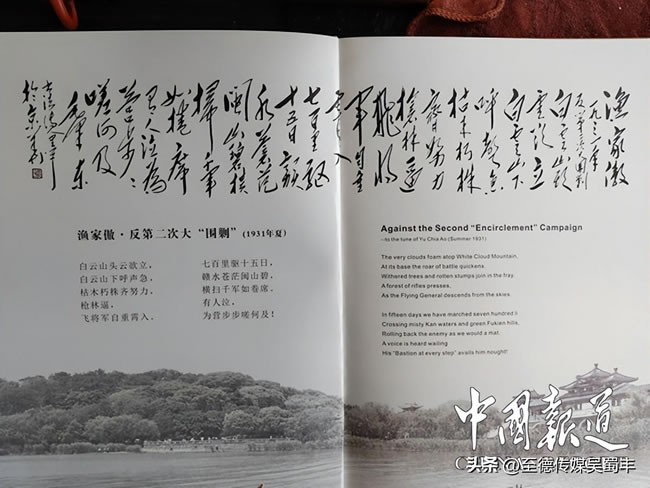 渔家傲
一九三一年
白云山头
云欲立
白云山下
呼声急
枯木朽株
齐努力
枪林逼
飞将
军自重
霄入
七百里驱
十五日赣
水苍茫
闽山碧横
扫千军
如卷席
有人泣为
营步步
嗟何及
渔家傲·反第二次大“围剿”(1931年夏)
白云山头云欲立,
白云山下呼声急,
枯木朽株齐努力,
枪林逼,
飞将军自重霄入。
七百里驱十五日,
赣水苍茫闽山碧,
横扫千军如卷席。
有人泣,
为营步步嗟何及!
Against the Second "Encirclement" Campaign
--to the tune of Yu Chia Ao (Summer 1931)
The very clouds foam atop White Cloud Mountain,
At its base the roar of battle quickens.
Withered trees and rotten stumps join in the fray.
A forest of rifles presses,
As the Flying General descends from the skies.
In fifteen days we have marched seven hundred li
Crossing misty Kan waters and green Fukien hills,
Rolling back the enemy as we would a mat.
A voice is heard wailing
His "Bastion at every step' avails him nought!
中國報道
头条 @至德传媒吴蜀丰